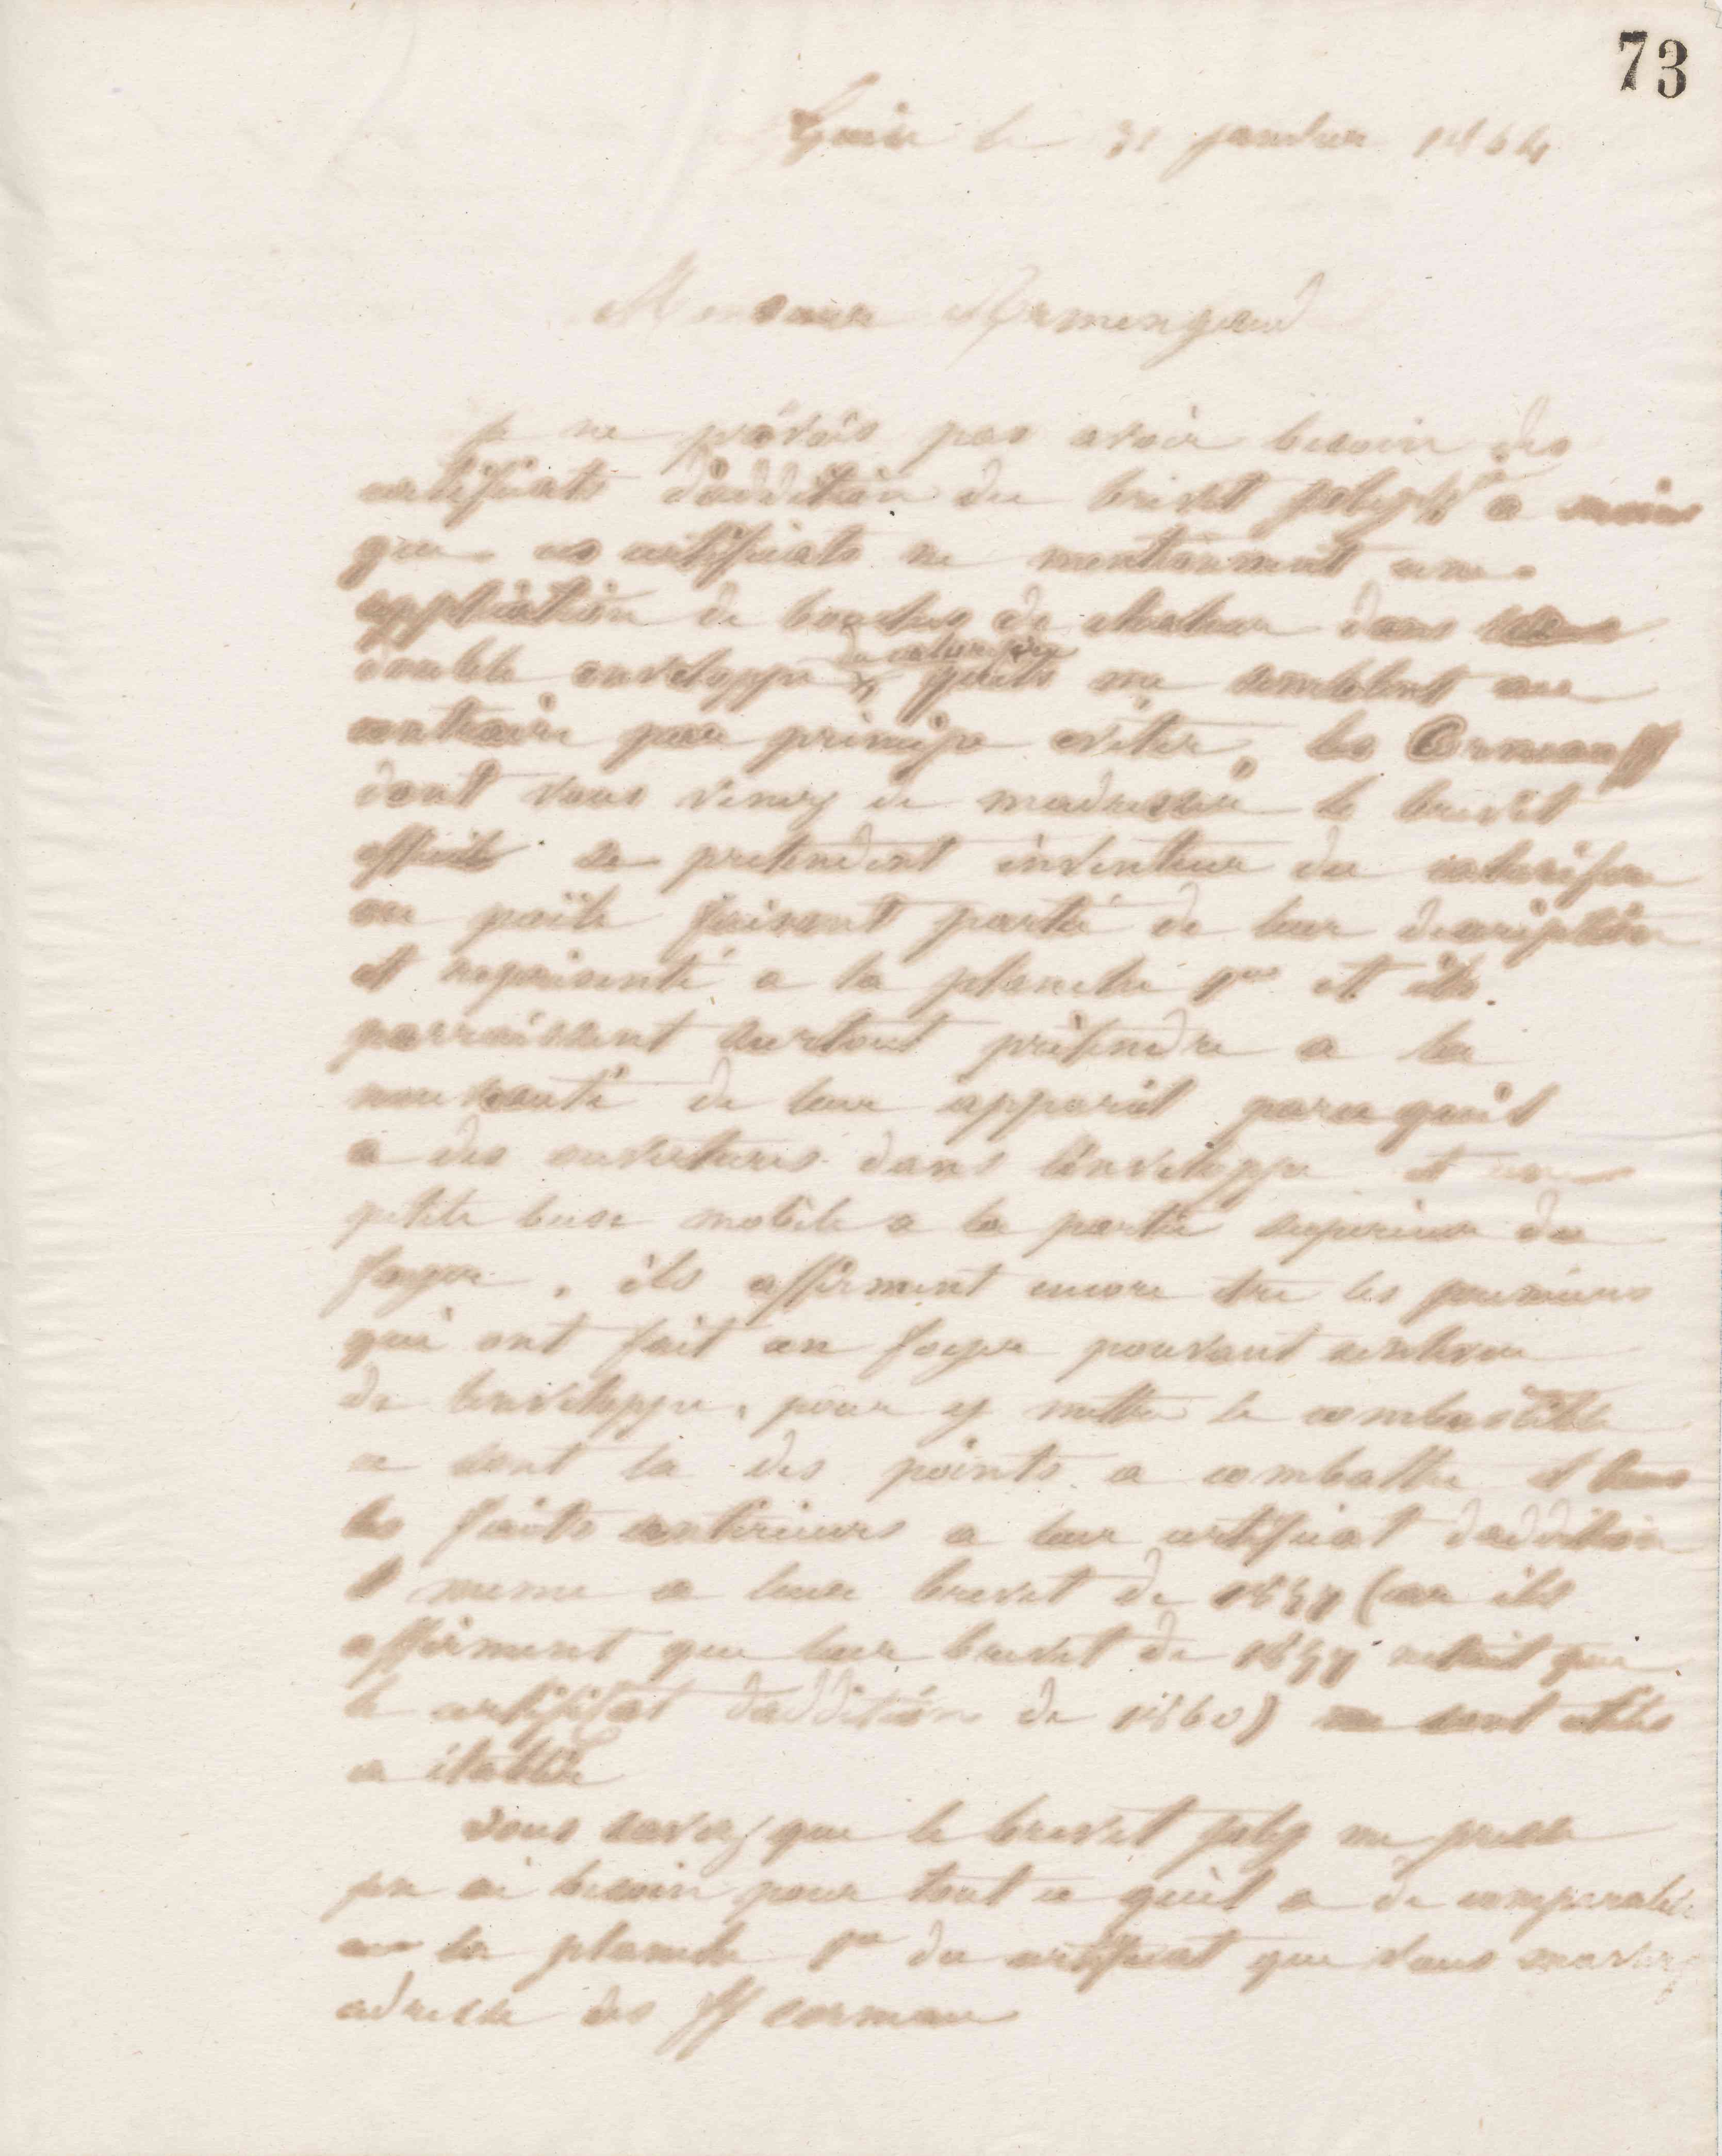 73
Guise le 31 janvier 1864
Monsieur Armengaud
Je ne prévois pas avoir besoin des
certificats d'addition du brevet Joly a moins
que ces certificats ne mentionnent une
application de bouches de chaleur dans
double enveloppe du calorifère quils me semblent au
contraire par principe éviter, les Corneau ff
dont vous venez de madresser le brevet
se pretendent inventeur du calorifere
ou poële faisant partie de leur description
et représenté a la planche 1re et ils
parraissent surtout prétendre a la
nouveauté de leur appareil parce quil
a des ouvertures dans lenveloppe et une
petite buse mobile a la partie superieur du
foyer, ils affirment encore être les premiers
qui ont fait un foyer pouvant senlever
de lenveloppe, pour y mettre le combustible
ce sont la des points a combattre et
les faits anterieurs a leur certificat daddition
et meme a leur brevet de 1857 (car ils
affirment que leur brevet de 1857 netait que
le certificat daddition de 1860) sont utiles
a établir
Vous savez que le brevet Joly me presse
jen ai besoin pour tout ce quil a de comparable
a la planche 1re du certificat que vous mavez
adressé des ff corneau